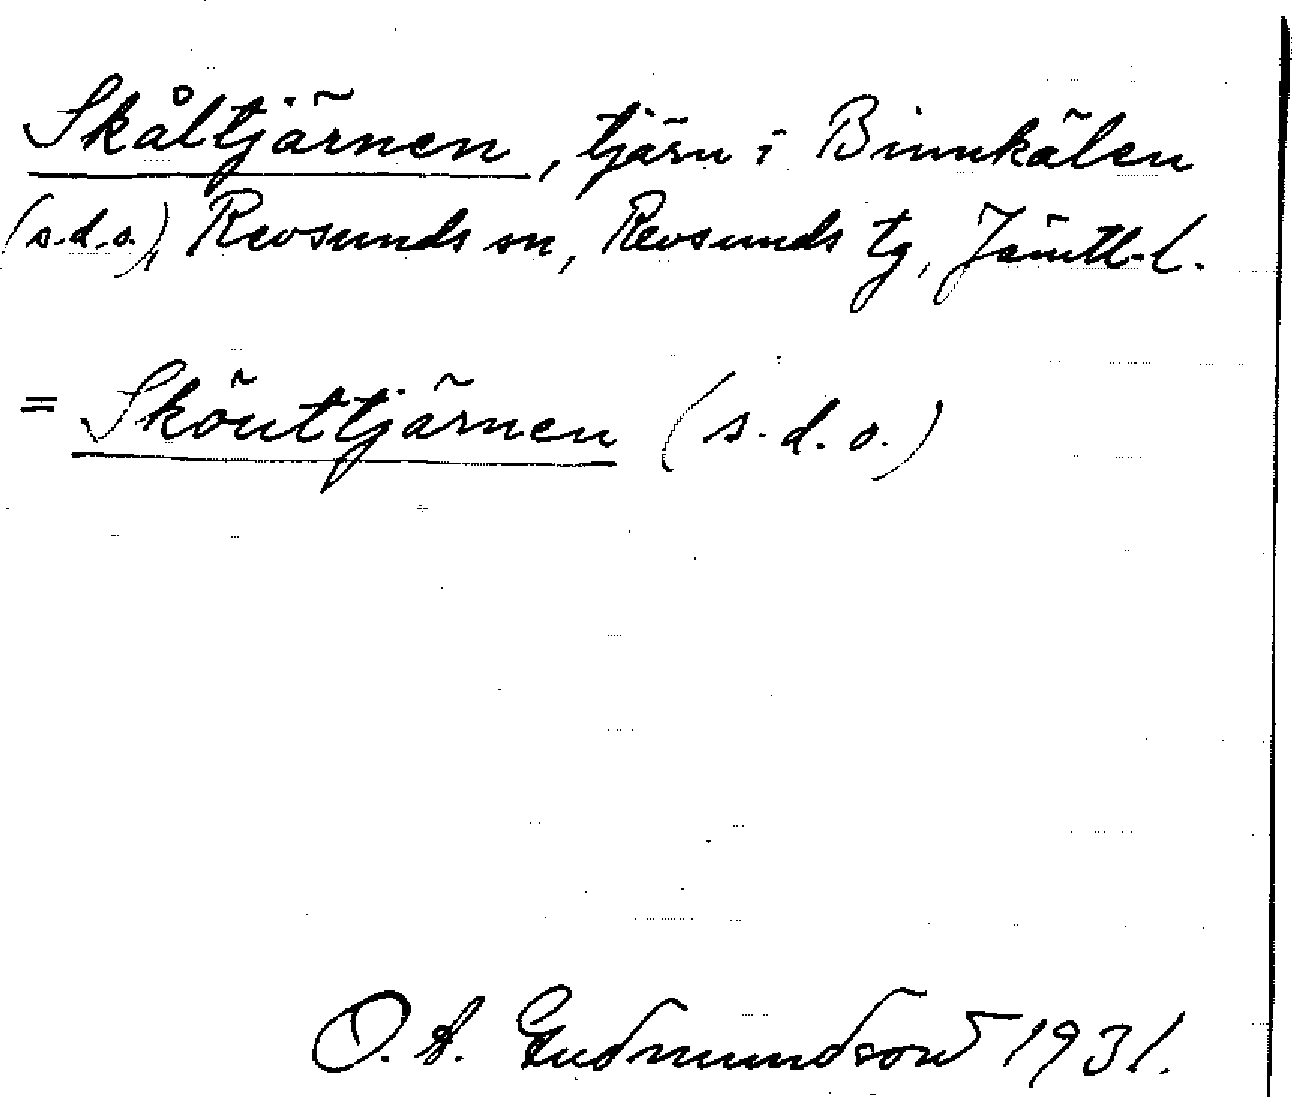 Skåltjärnen, tjärn i Binnkälen
(s.d.o.), Revsunds sn, Revsunds tg, Jämtl. l.
= Skönttjärnen (s. d. o.)
O. A. Gudmundson 1931.